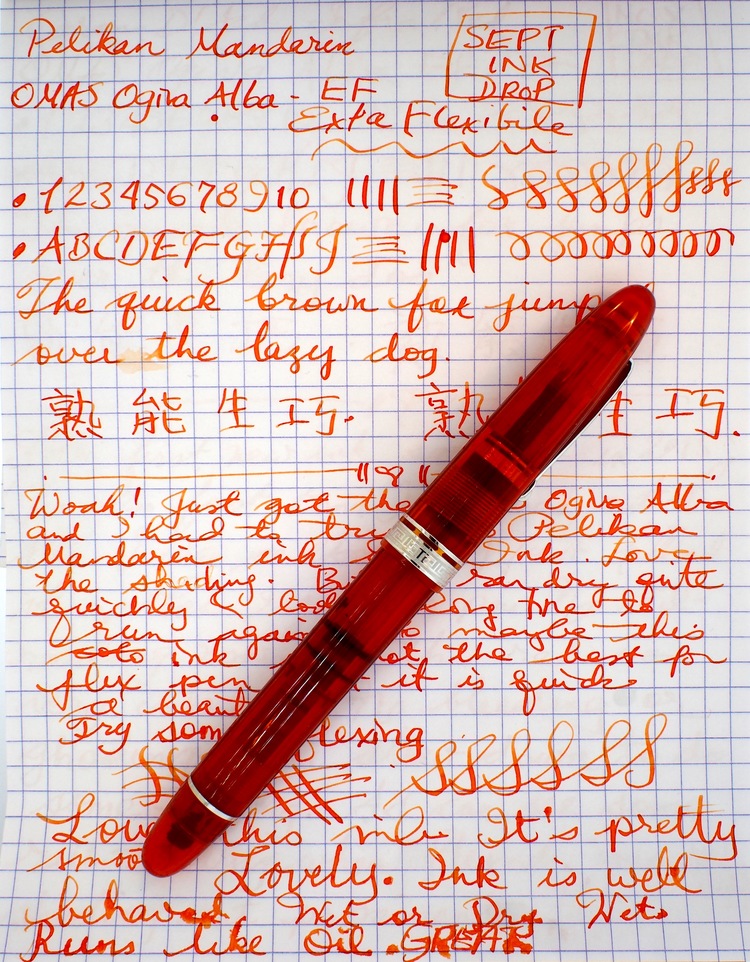 Pelikan Mandarin
SEPT
INK
DROP
OMAS Ogiva Alba - EF
Exta Flexibile
1 2 3 4 5 6 7 8 9 10
A B C D E F G H I J
The quick brown fox jump
over the lazy dog.
熟 能 生 巧. 熟 生 巧.
Woah! Just got the Ogiva Alba
and I had to try Pelikan
Mandarin ink Ink. Love
the shading. ran dry quite
quickly & long time to
run again maybe this
ink not the best for
flex pen it is quick
a beaut
Try som flexing
Love this nib. It's pretty
smoo Lovely. Ink is well
behaved. Wet or Dry Net.
Runs like Oil. GREAT